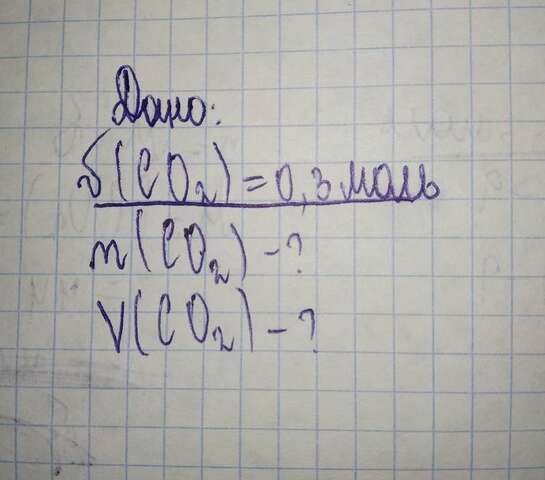 Дано:
ν(CO₂) = 0,3 моль
m(CO₂) - ?
V(CO₂) - ?